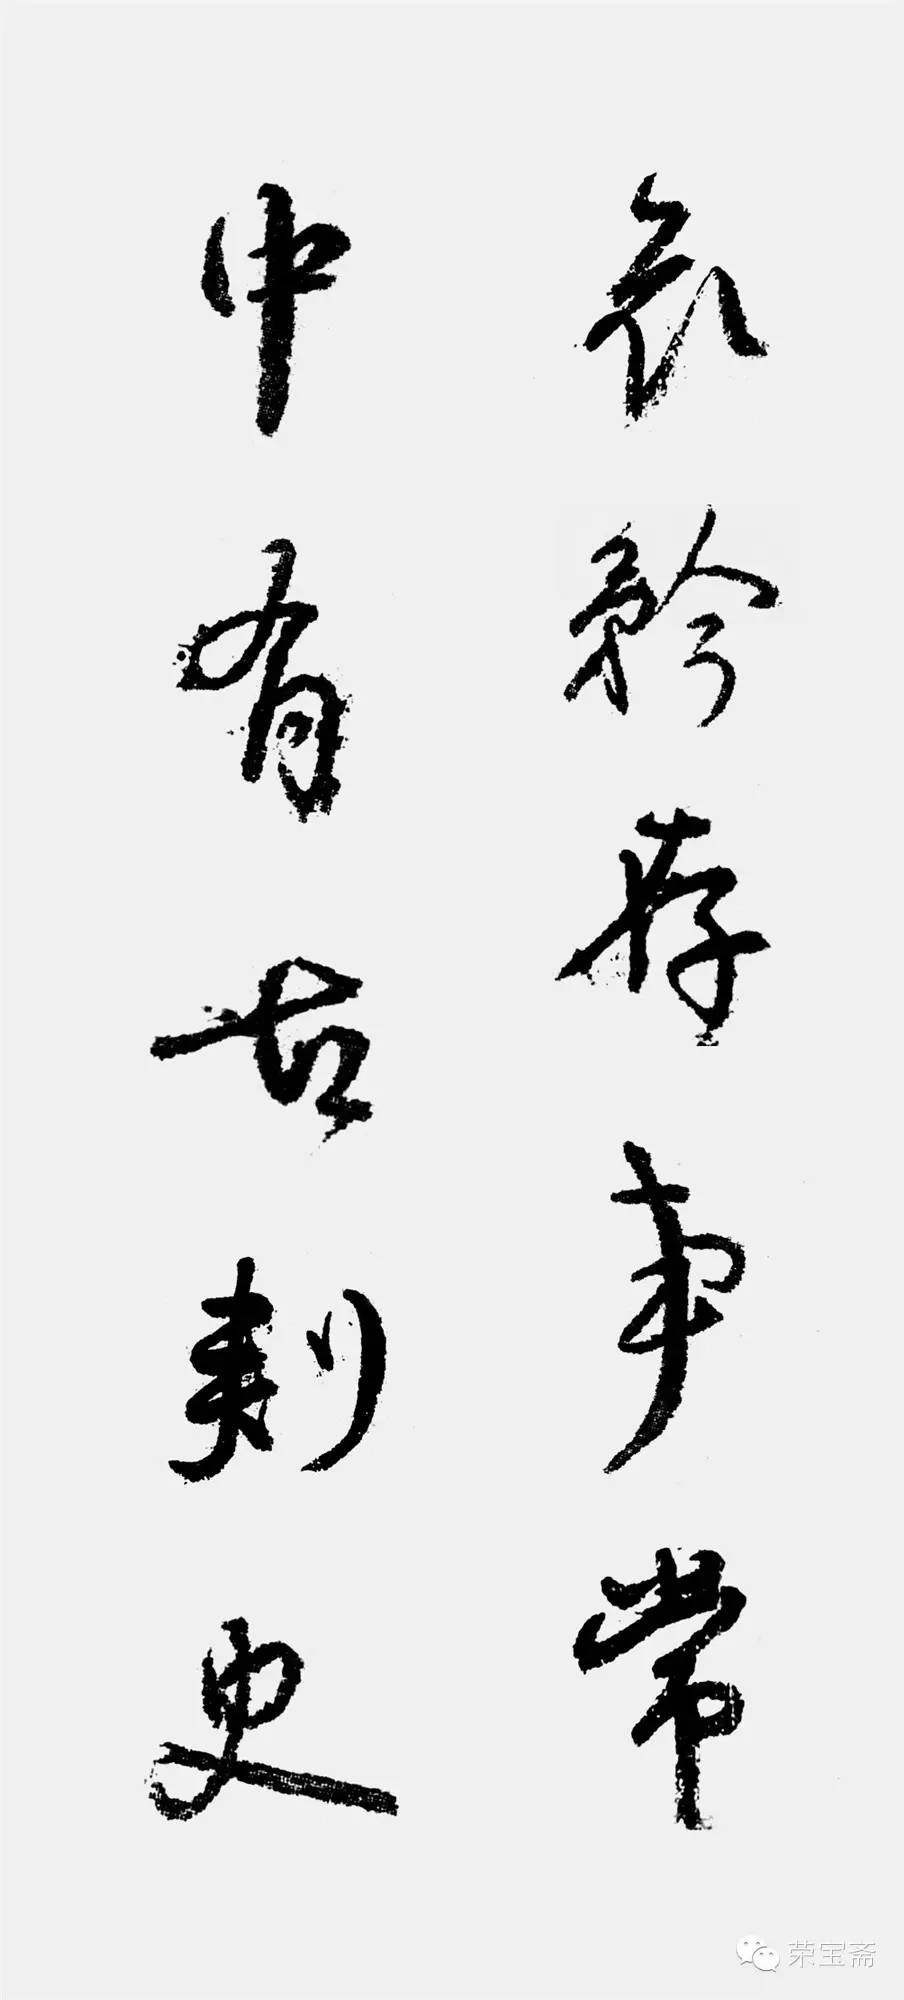 哀矜存事常
中有古刺史
荣宝斋